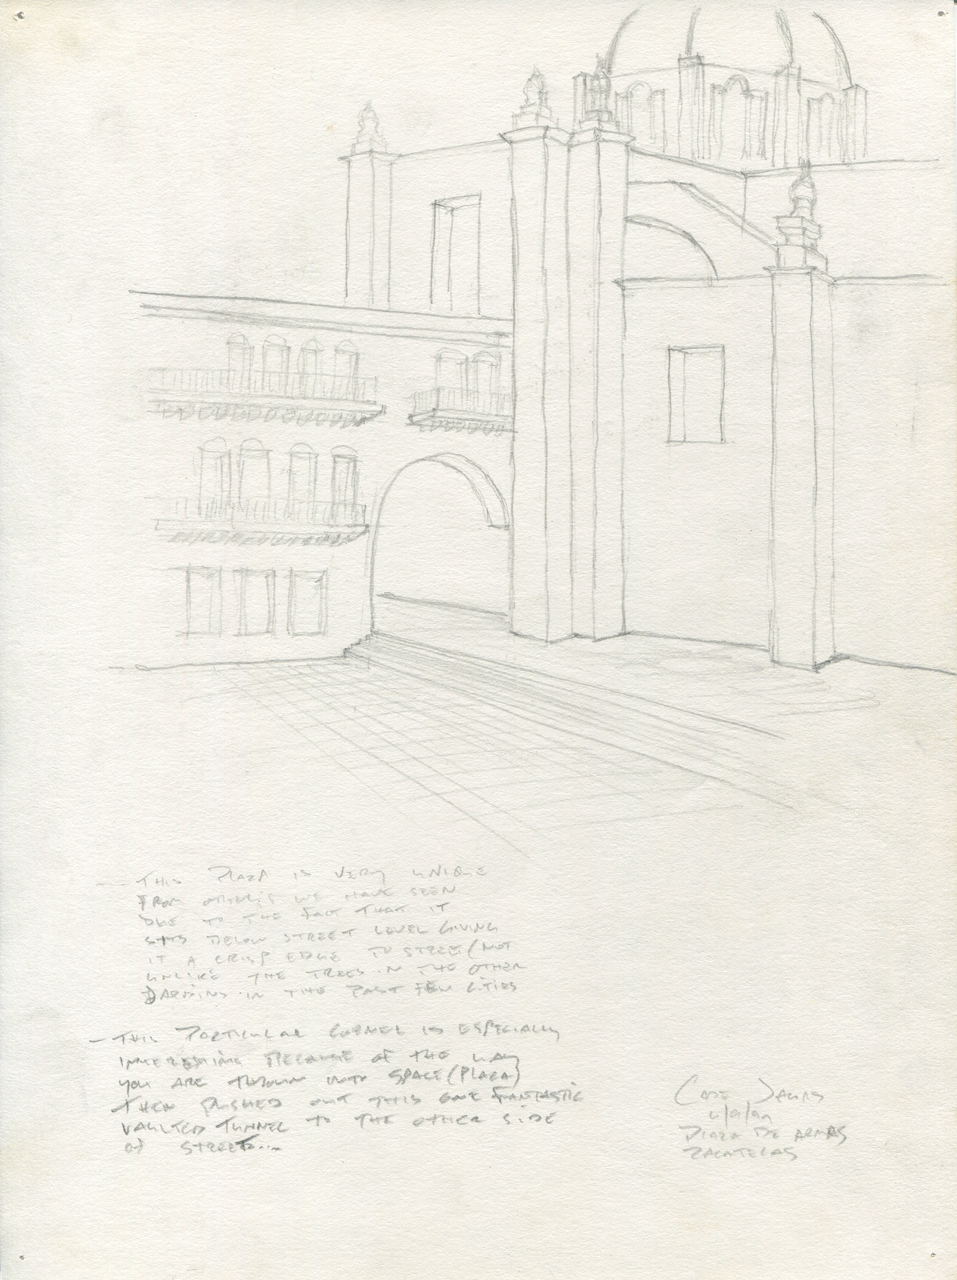 — THIS PLAZA IS VERY UNIQUE
FROM OTHERS WE HAVE SEEN
DUE TO THE FACT THAT IT
SITS BELOW STREET LEVEL GIVING
IT A CRISP EDGE TO STREET (NOT
UNLIKE THE TREES IN THE OTHER
IN THE PAST FEW CITIES
— THIS PARTICULAR CORNER IS ESPECIALLY
INTERESTING BECAUSE OF THE WAY
YOU ARE THROWN INTO SPACE (PLAZA)
THEN PUSHED OUT THIS ONE FANTASTIC
VAULTED TUNNEL TO THE OTHER SIDE
OF STREET...
PLAZA DE ARMAS
ZACATECAS